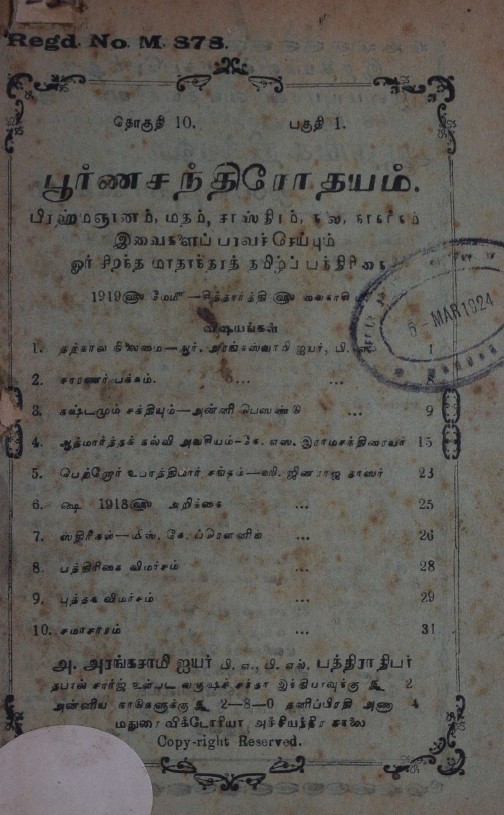 Regd. No. M. 878.
தொகுதி 10. பகுதி 1.
பூர்ணசந்திரோதயம்.
பிரஹ்மஞானம், மதம், சாஸ்திரம், கலை, நாகரிகம்
இவைகளைப் பரவச்செய்யும்
ஓர் சிறந்த மாதாந்தரத் தமிழ்ப் பத்திரிகை
1919ளு மேமீ —சித்தார்த்தி ளு வைகாசி
5 - MAR 1924
விஷயங்கள்
1. தற்கால நிலைமை—ஆர். அரங்கஸ்வாமி ஐயர், பி. 1
2. சாரணர் பக்கம். ... ...
3. கஷ்டமும் சக்தியும்—அன்னி பெஸண்டு ... 9
4. ஆத்மார்த்தக் கல்வி அவசியம்-கே. எஸ். இராமசந்திரையர் 15
5. பெற்றோர் உபாத்திமார் சங்கம்—ஸி. ஜினராஜ தாஸர் 23
6. ஷை 1918ளு அறிக்கை ... 25
7. ஸ்திரீகள்—மிஸ். கே. ப்ரௌனிங் ... 26
8. பத்திரிகை விமர்சம் ... 28
9. புத்தக விமர்சம் ... 29
10. சமாசாரம் ... 31
அ. அரங்கசாமி ஐயர் பி. ஏ., பி. எல்., பத்திராதிபர்
தபால் சார்ஜ் உள்பட வருஷச் சந்தா இந்தியாவுக்கு ரூ 2
அன்னிய நாடுகளுக்கு ரூ 2—8—0 தனிப்பிரதி அணா 4
மதுரை விக்டோரியா அச்சியந்திர சாலை
Copy-right Reserved.